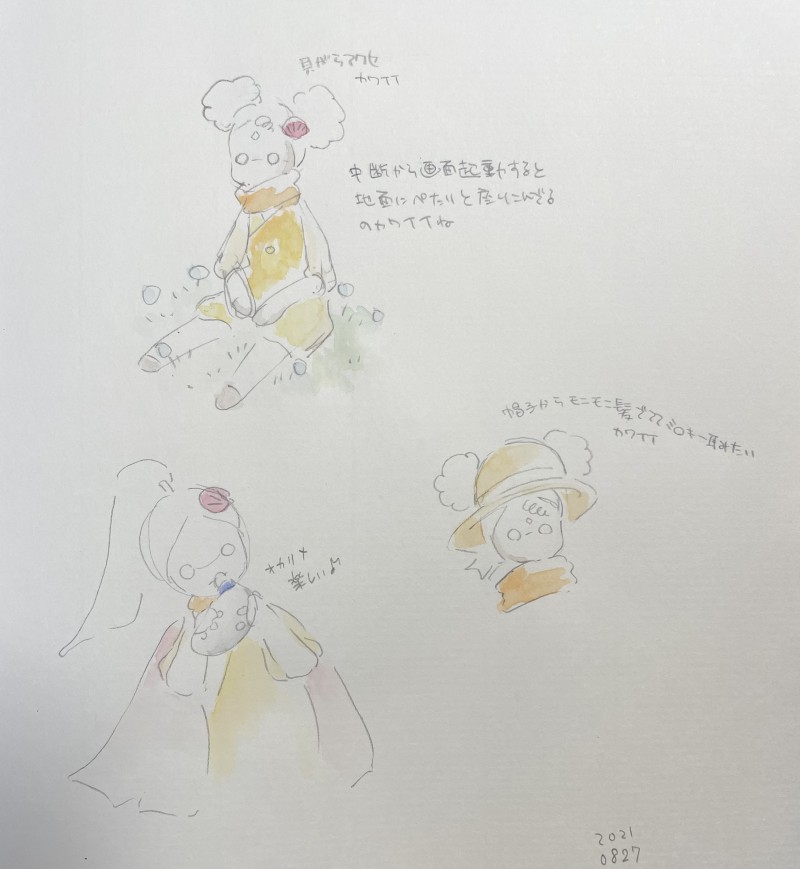 貝がらアクセ
カワイイ
中断から画面起動すると
地面にぺたりと座りこんでる
のカワイイね
帽子からモニモニ髪でてて ミッキー耳みたい
カワイイ
オカリナ
楽しい♪
2021
0827